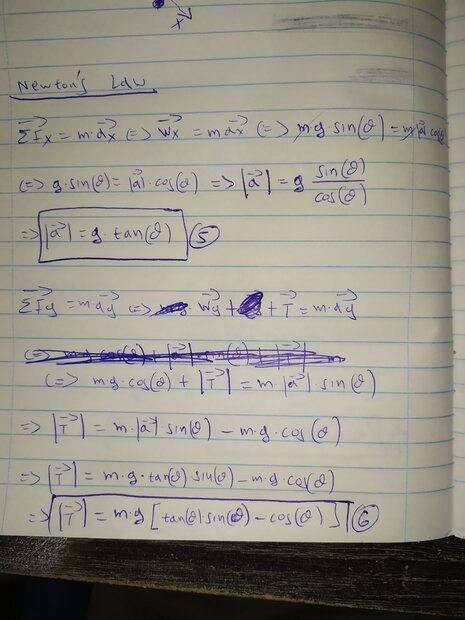 x
Newton's Law
Σ⃗Fx = m·a⃗x (=> W⃗x = m·a⃗x (=> m·g·sin(θ) = m·|a⃗|·cos(θ)
(=> g·sin(θ) = |a⃗|·cos(θ) => |a⃗| = g sin(θ)/cos(θ)
=> |a⃗| = g·tan(θ) (5)
Σ⃗Fy = m·a⃗y (=> W⃗y + + T⃗ = m·a⃗y
(=> m·g·cos(θ) + |T⃗| = m·|a⃗|·sin(θ)
=> |T⃗| = m·|a⃗|·sin(θ) - m·g·cos(θ)
=> |T⃗| = m·g·tan(θ) sin(θ) - m·g·cos(θ)
=> |T⃗| = m·g [tan(θ)·sin(θ) - cos(θ)] (6)